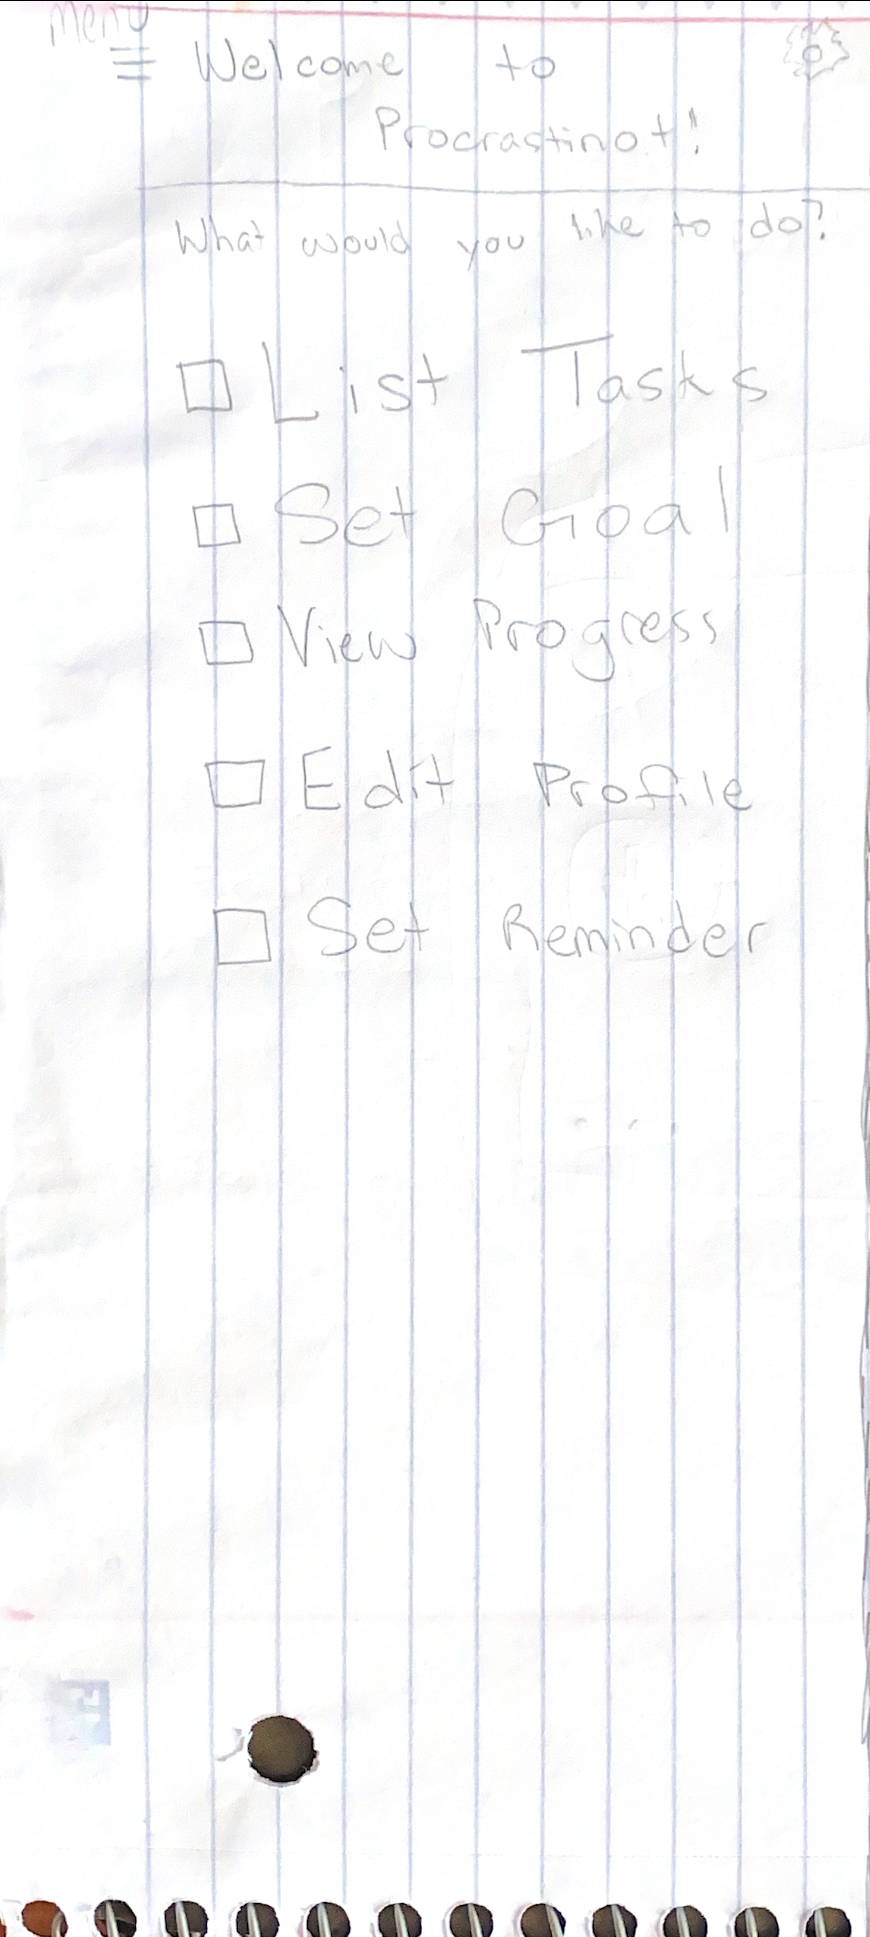 Menu
Welcome to
Procrastinot!
What would you like to do?
List Tasks
Set Goal
View Progress
Edit Profile
Set Reminder